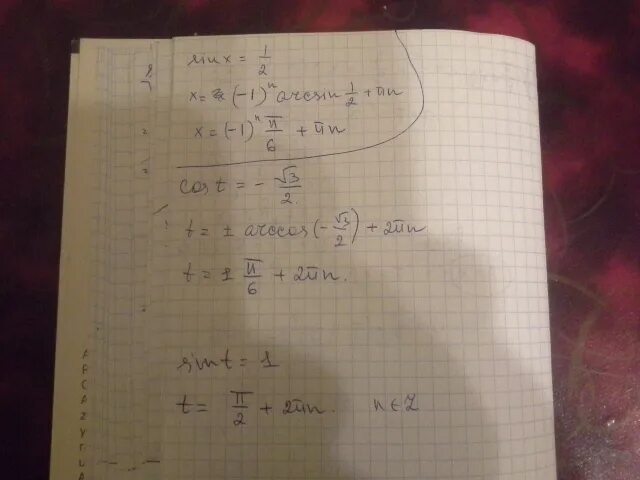 sin x = 1/2
x = (-1)^n arcsin 1/2 + πn
x = (-1)^n π/6 + πn
cos t = - √3/2
t = ± arccos(-√3/2) + 2πn
t = ± π/6 + 2πn.
sin t = 1
t = π/2 + 2πn. n ∈ Z